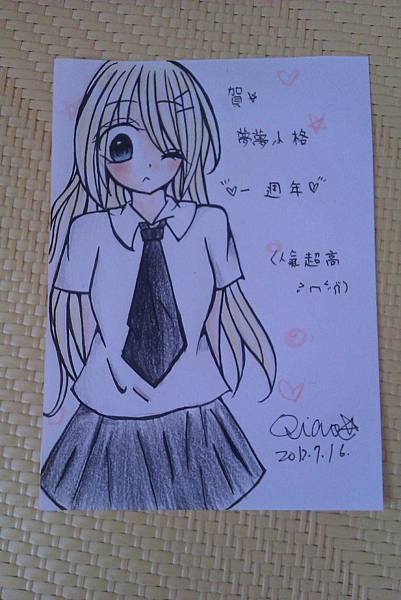 賀☆
夢夢小格
♡一週年♡
人氣超高
Qiao☆
2012.7.16.